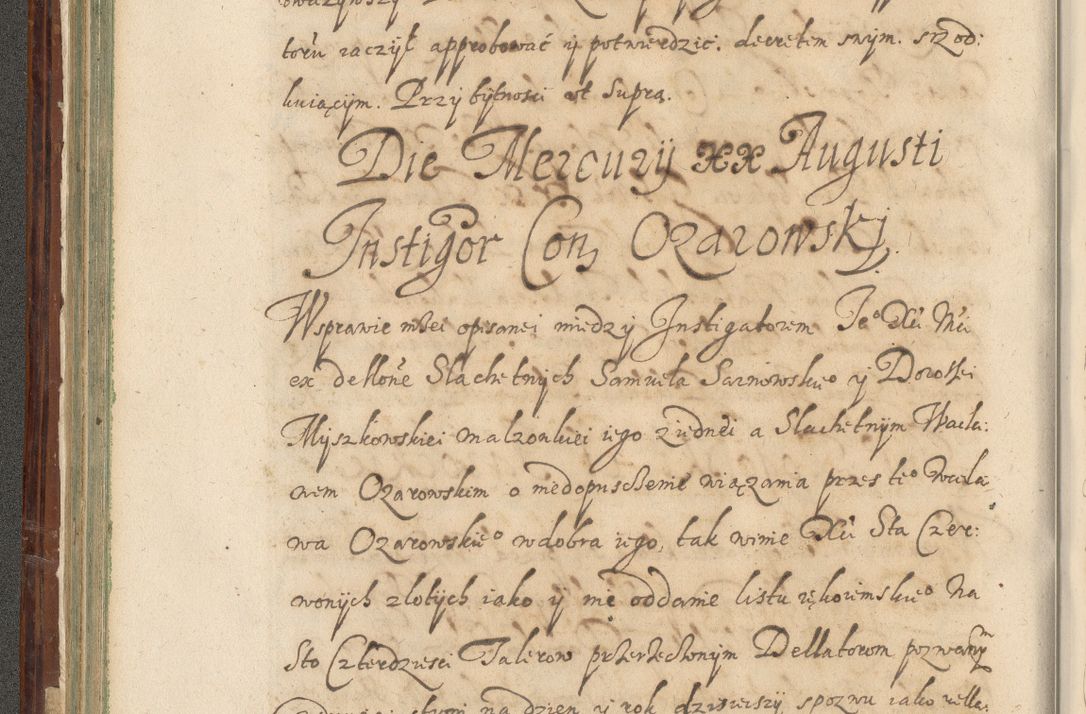 toru raczył approbować y potwierdzic. decretem swym. srzod:
kuiącym. Przy bytnosci ut supra.
Die Mercurij xx Augusti
Instigor Con Ozarowskj
Wsprawie niżei opisanei między Instigatorem Je° Kń Mći
ex dellone Slachetnych Samuela Sarnowskie° y Dorothei
Myszkowskiei małzonkiei iego ziednei a Slachetnym Wacła:
wem Ozarowskim o niedopuschenie wiązania przes te° Wacła
wa Ozarowskie° w dobra iego, tak winie Kń Sta Czer:
wonych zlotych iako y nie oddanie listu rękoiemskie° Na
Sto Czterdziesci Talerow przerzechonym Dellatorom pozwanym
na dzien y rok dzisieiszy spozwu iako rella: